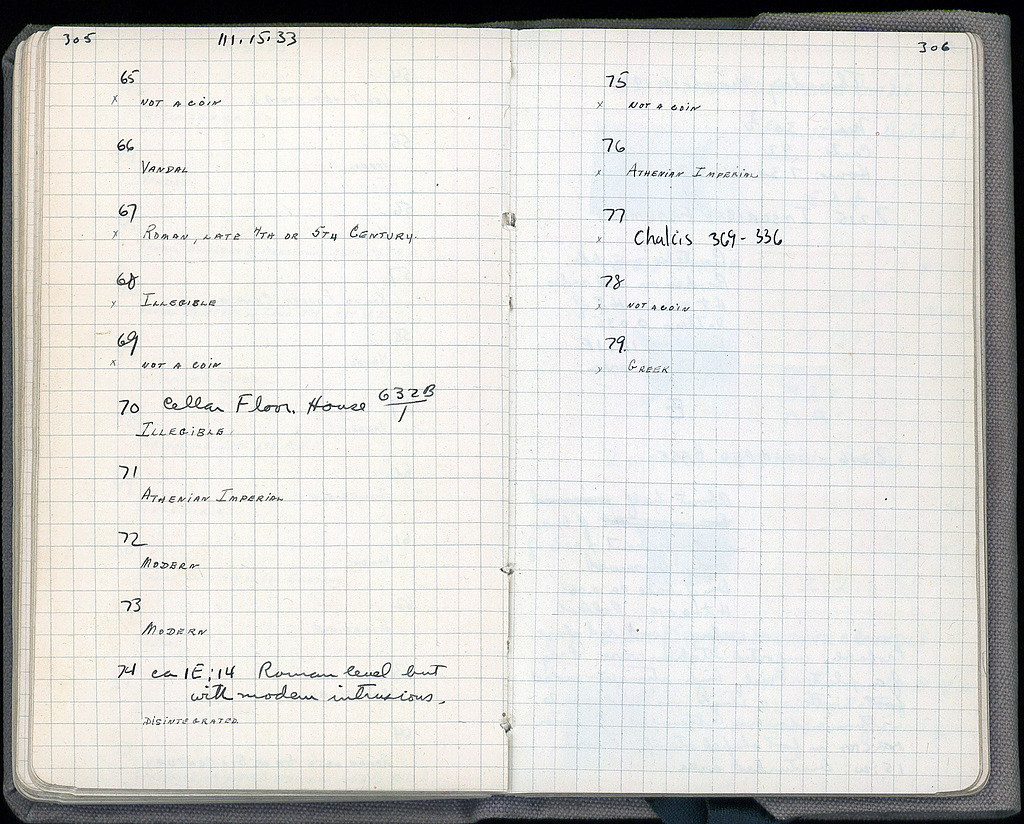 305 111.15.33
65
x NOT A COIN
66
VANDAL
67
x ROMAN, LATE 4TH OR 5TH CENTURY.
68
x ILLEGIBLE
69
x NOT A COIN
70 Cellar Floor. House 632B/1
ILLEGIBLE
71
ATHENIAN IMPERIAL
72
MODERN
73
MODERN
74 ca 1E; 14 Roman level but
with modern intrusions.
DISINTEGRATED.
306
75
x NOT A COIN
76
x ATHENIAN IMPERIAL
77
x Chalcis 369-336
78
x NOT A COIN
79.
x GREEK